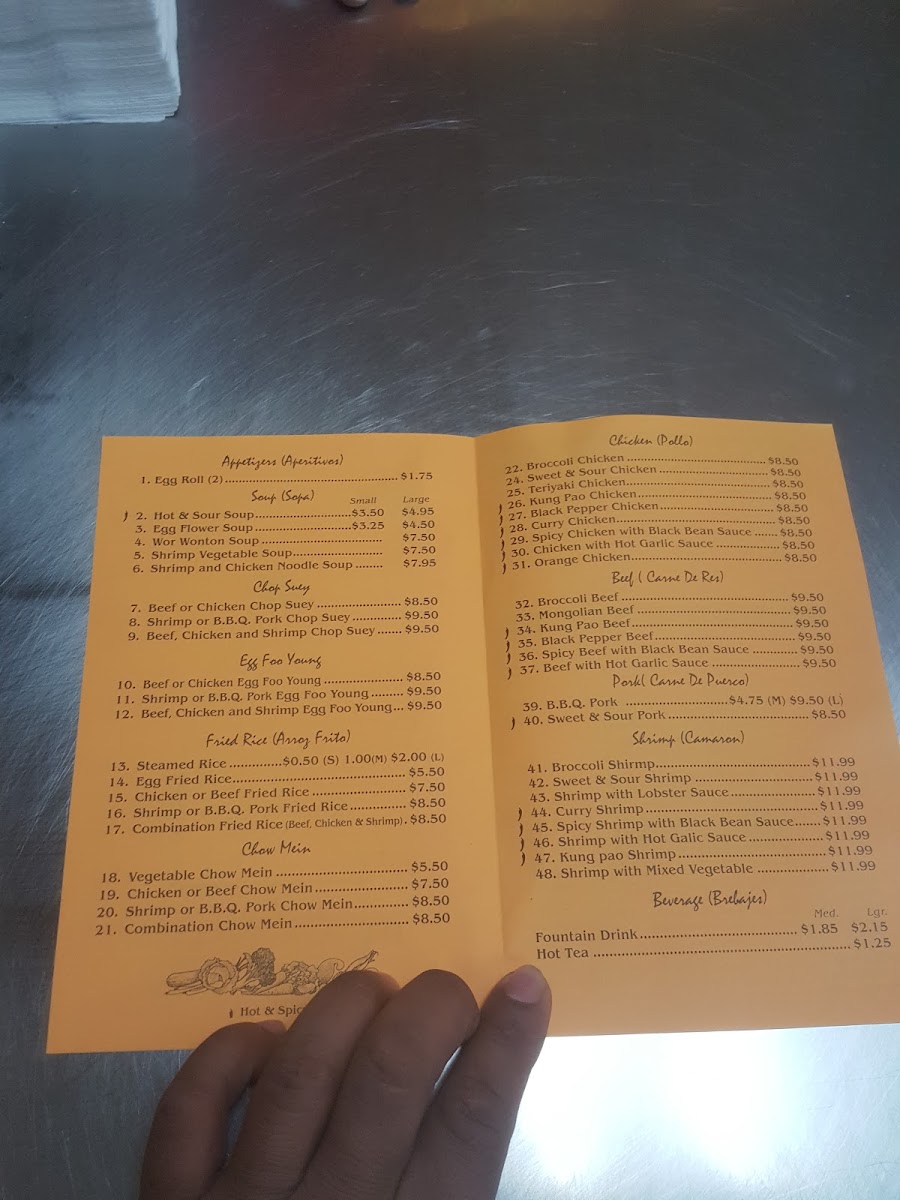 Appetizers (Aperitivos)
1. Egg Roll (2)........................................$1.75
Soup (Sopa) Small Large
2. Hot & Sour Soup........................$3.50 $4.95
3. Egg Flower Soup........................$3.25 $4.50
4. Wor Wonton Soup .............................. $7.50
5. Shrimp Vegetable Soup...................... $7.50
6. Shrimp and Chicken Noodle Soup ........ $7.95
Chop Suey
7. Beef or Chicken Chop Suey .................... $8.50
8. Shrimp or B.B.Q. Pork Chop Suey ............ $9.50
9. Beef, Chicken and Shrimp Chop Suey ...... $9.50
Egg Foo Young
10. Beef or Chicken Egg Foo Young .................... $8.50
11. Shrimp or B.B.Q. Pork Egg Foo Young ........ $9.50
12. Beef, Chicken and Shrimp Egg Foo Young... $9.50
Fried Rice (Arroz Frito)
13. Steamed Rice .............$0.50 (S) 1.00(M) $2.00 (L)
14. Egg Fried Rice.......................................... $5.50
15. Chicken or Beef Fried Rice ...................... $7.50
16. Shrimp or B.B.Q. Pork Fried Rice.............. $8.50
17. Combination Fried Rice (Beef, Chicken & Shrimp). $8.50
Chow Mein
18. Vegetable Chow Mein ................................ $5.50
19. Chicken or Beef Chow Mein...................... $7.50
20. Shrimp or B.B.Q. Pork Chow Mein............. $8.50
21. Combination Chow Mein............................ $8.50
Hot & Spic
Chicken (Pollo)
22. Broccoli Chicken ...................................$8.50
24. Sweet & Sour Chicken ............................$8.50
25. Teriyaki Chicken....................................$8.50
26. Kung Pao Chicken .................................$8.50
27. Black Pepper Chicken.............................$8.50
28. Curry Chicken........................................$8.50
29. Spicy Chicken with Black Bean Sauce ......$8.50
30. Chicken with Hot Garlic Sauce ................$8.50
31. Orange Chicken.....................................$8.50
Beef ( Carne De Res)
32. Broccoli Beef .........................................$9.50
33. Mongolian Beef ......................................$9.50
34. Kung Pao Beef.......................................$9.50
35. Black Pepper Beef..................................$9.50
36. Spicy Beef with Black Bean Sauce ...........$9.50
37. Beef with Hot Garlic Sauce .....................$9.50
Pork( Carne De Puerco)
39. B.B.Q. Pork ..........................$4.75 (M) $9.50 (L)
40. Sweet & Sour Pork ...................................$8.50
Shrimp (Camaron)
41. Broccoli Shirmp.......................................$11.99
42. Sweet & Sour Shrimp ..............................$11.99
43. Shrimp with Lobster Sauce ......................$11.99
44. Curry Shrimp ..........................................$11.99
45. Spicy Shrimp with Black Bean Sauce.......$11.99
46. Shrimp with Hot Galic Sauce ...................$11.99
47. Kung pao Shrimp.....................................$11.99
48. Shrimp with Mixed Vegetable ..................$11.99
Beverage (Brebajes)
Med. Lgr.
Fountain Drink........................................ $1.85 $2.15
Hot Tea ..................................................................$1.25